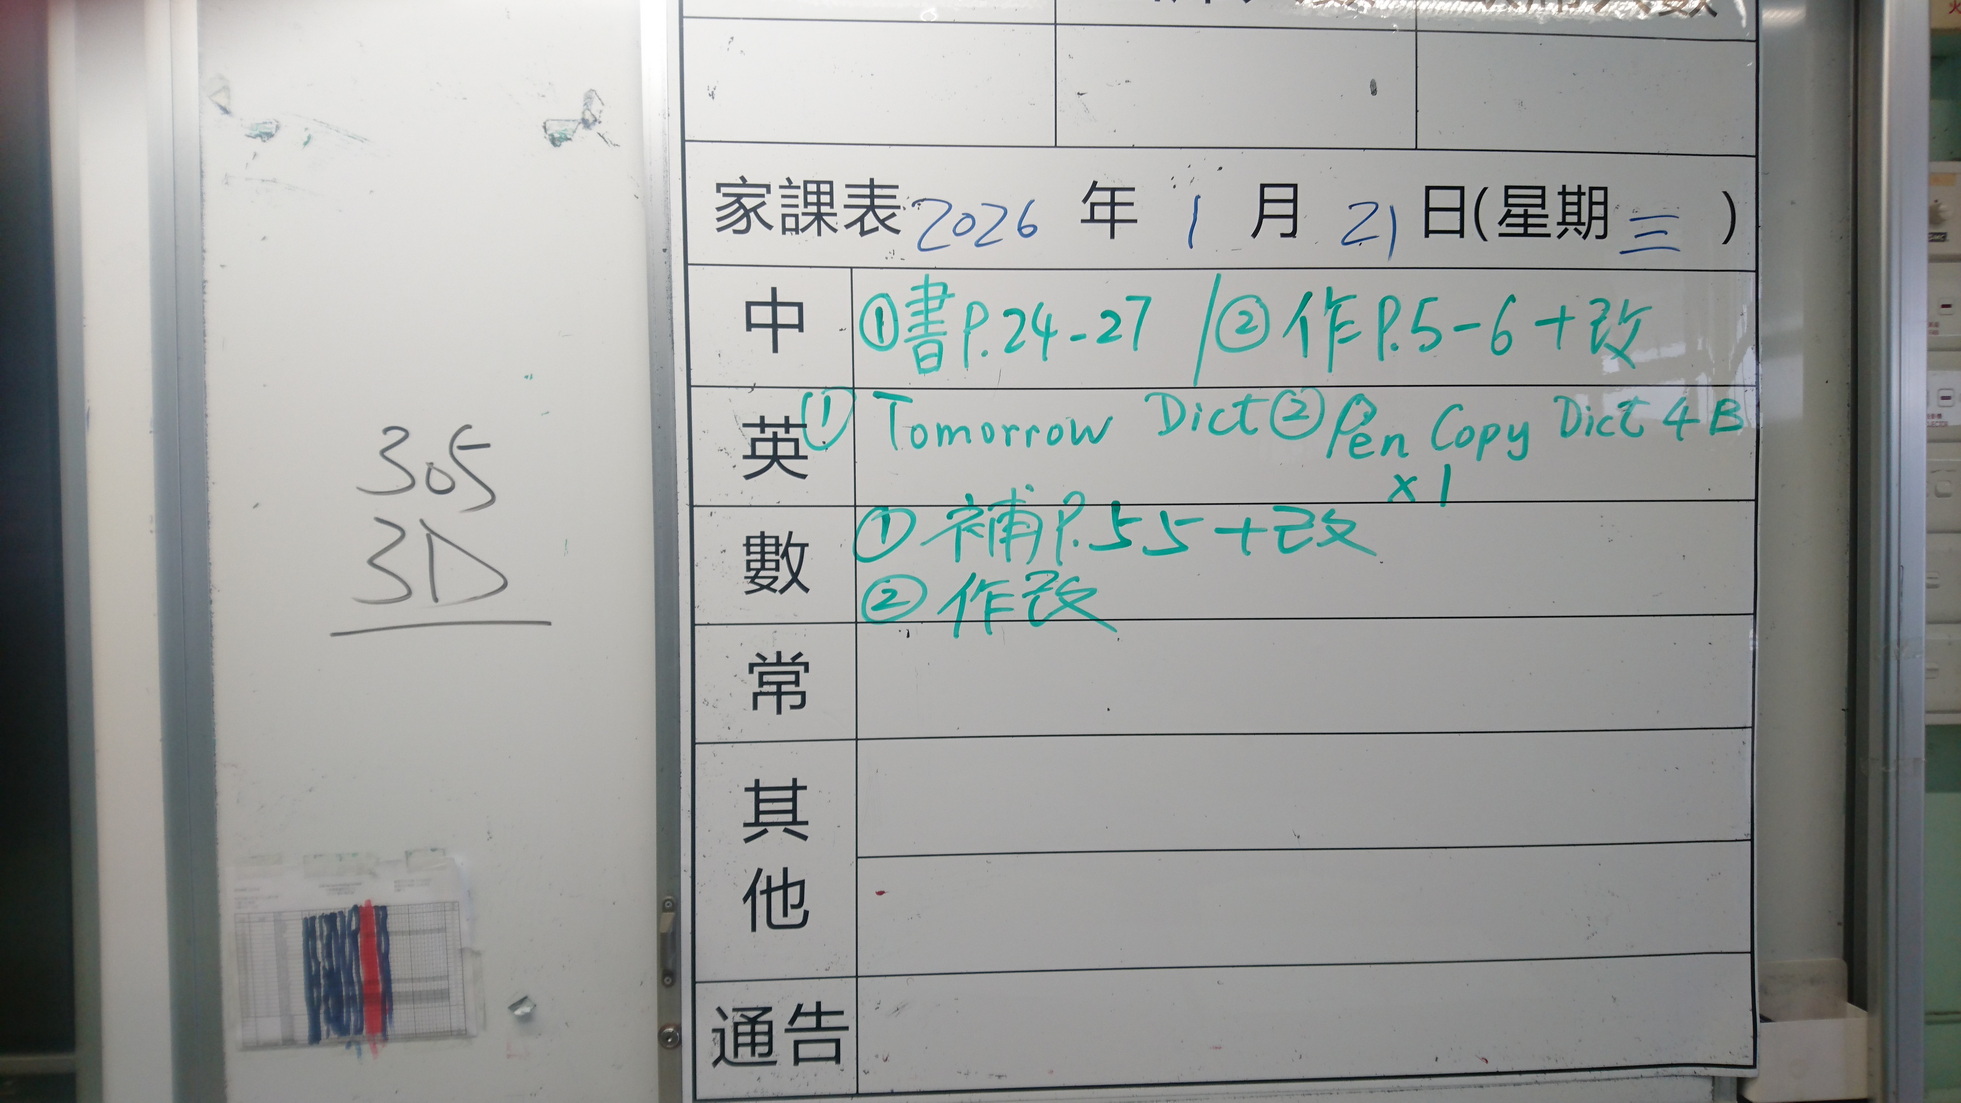 305
3D
家課表 2026 年 1 月 21 日(星期 三 )
中 ①書P.24-27 / ②作P.5-6+改
英 ① Tomorrow Dict ② Pen Copy Dict 4B
x1
數 ① 補P.55+改
② 作改
常
其他
通告